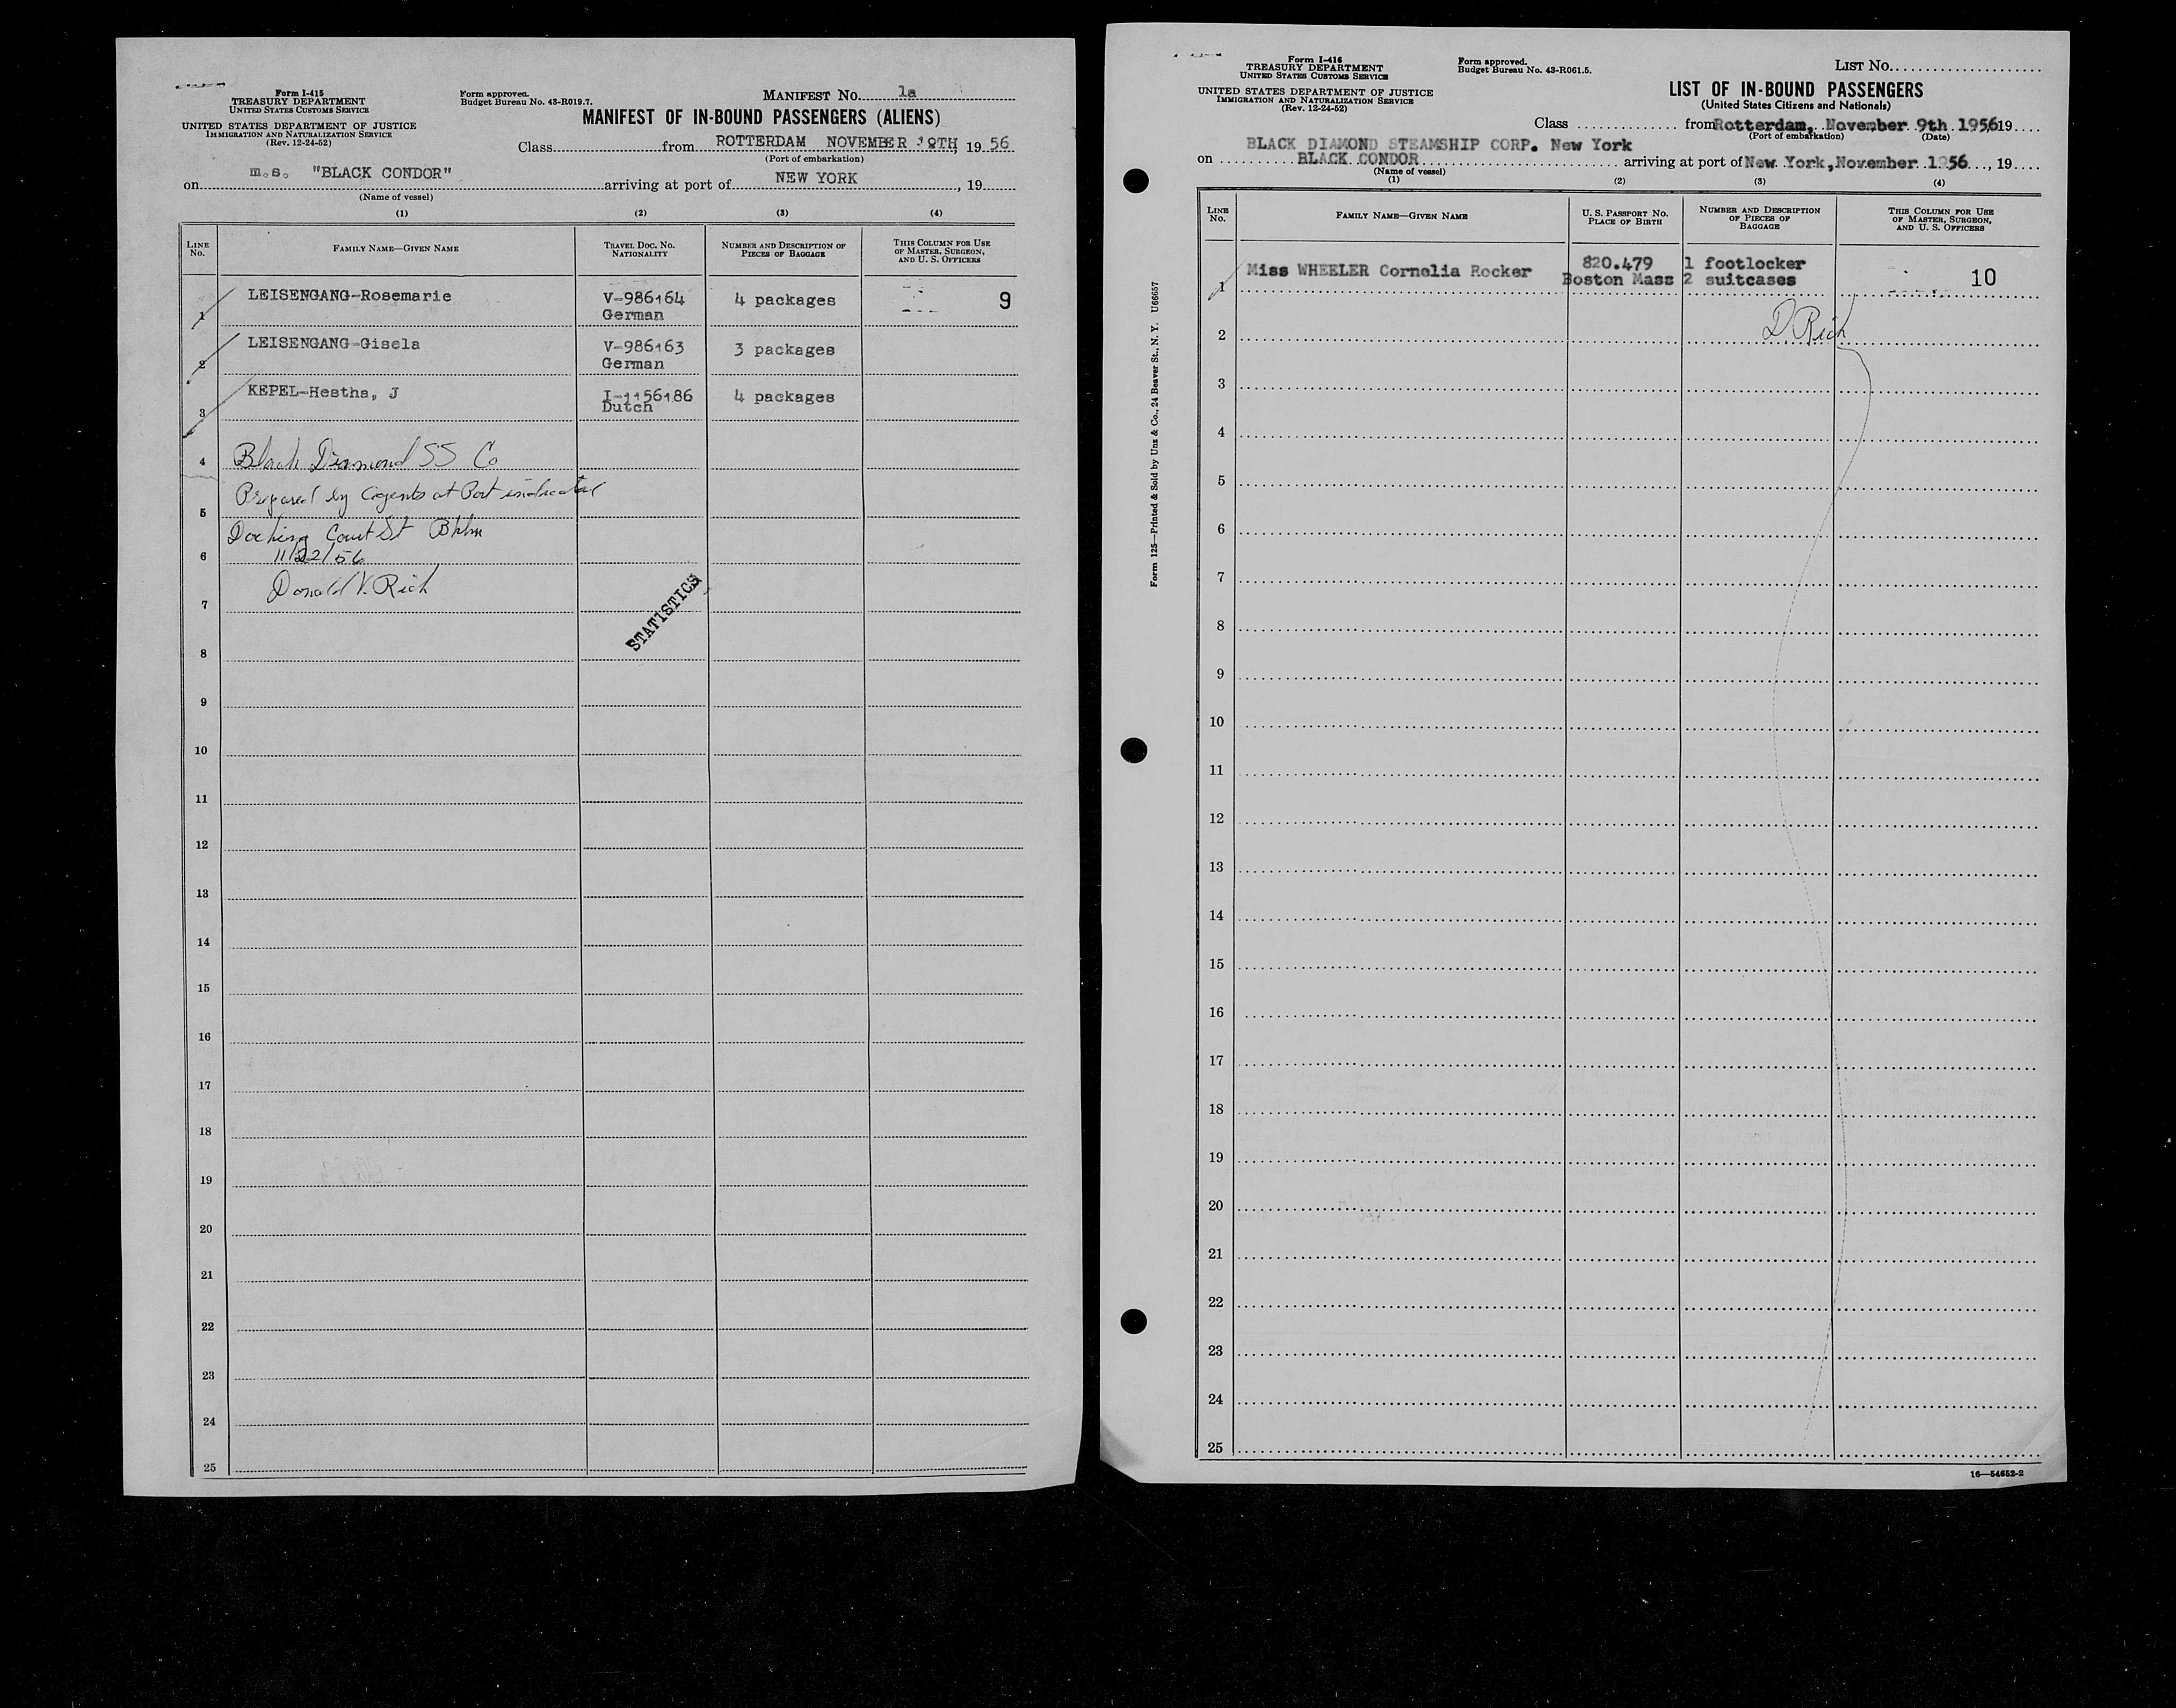 Form I-415
TREASURY DEPARTMENT
UNITED STATES CUSTOMS SERVICE
UNITED STATES DEPARTMENT OF JUSTICE
IMMIGRATION AND NATURALIZATION SERVICE
(Rev. 12-24-52)
Form approved.
Budget Bureau No. 43-R019.7.
MANIFEST No. 1a
MANIFEST OF IN-BOUND PASSENGERS (ALIENS)
Class from ROTTERDAM NOVEMBER 19 56
(Port of embarkation)
on m.s. "BLACK CONDOR" arriving at port of NEW YORK, 19
(Name of vessel)
(1) (2) (3) (4)
LINE No. FAMILY NAME—GIVEN NAME TRAVEL DOC. NO. NATIONALITY NUMBER AND DESCRIPTION OF PIECES OF BAGGAGE THIS COLUMN FOR USE OF MASTER, SURGEON, AND U. S. OFFICERS
1 LEISENGANG-Rosemarie V-986164 German 4 packages 9
2 LEISENGANG-Gisela V-986163 German 3 packages
3 KEPEL-Hestha, J I-1156186 Dutch 4 packages
4 Black Diamond SS Co
Prepared by Agents at Port indicated
5
Docking Court St Bklyn
6 11/22/56
Donald V. Rich
7
STATISTICS
8
9
10
11
12
13
14
15
16
17
18
19
20
21
22
23
24
25
Form I-416
TREASURY DEPARTMENT
UNITED STATES CUSTOMS SERVICE
UNITED STATES DEPARTMENT OF JUSTICE
IMMIGRATION AND NATURALIZATION SERVICE
(Rev. 12-24-52)
Form approved.
Budget Bureau No. 43-R061.5.
LIST No.
LIST OF IN-BOUND PASSENGERS
(United States Citizens and Nationals)
Class from Rotterdam, November 9th 1956 19
(Port of embarkation) (Date)
BLACK DIAMOND STEAMSHIP CORP. New York
on BLACK CONDOR arriving at port of New York, November 1956, 19
(Name of vessel)
(1) (2) (3) (4)
LINE No. FAMILY NAME—GIVEN NAME U. S. PASSPORT NO. PLACE OF BIRTH NUMBER AND DESCRIPTION OF PIECES OF BAGGAGE THIS COLUMN FOR USE OF MASTER, SURGEON, AND U. S. OFFICERS
1 Miss WHEELER Cornelia Rocker 820.479 Boston Mass 1 footlocker 2 suitcases 10
2 D Rich
3
4
5
6
7
8
9
10
11
12
13
14
15
16
17
18
19
20
21
22
23
24
25
Form 125—Printed & Sold by Unz & Co., 24 Beaver St., N. Y. U66657
16—54652-2